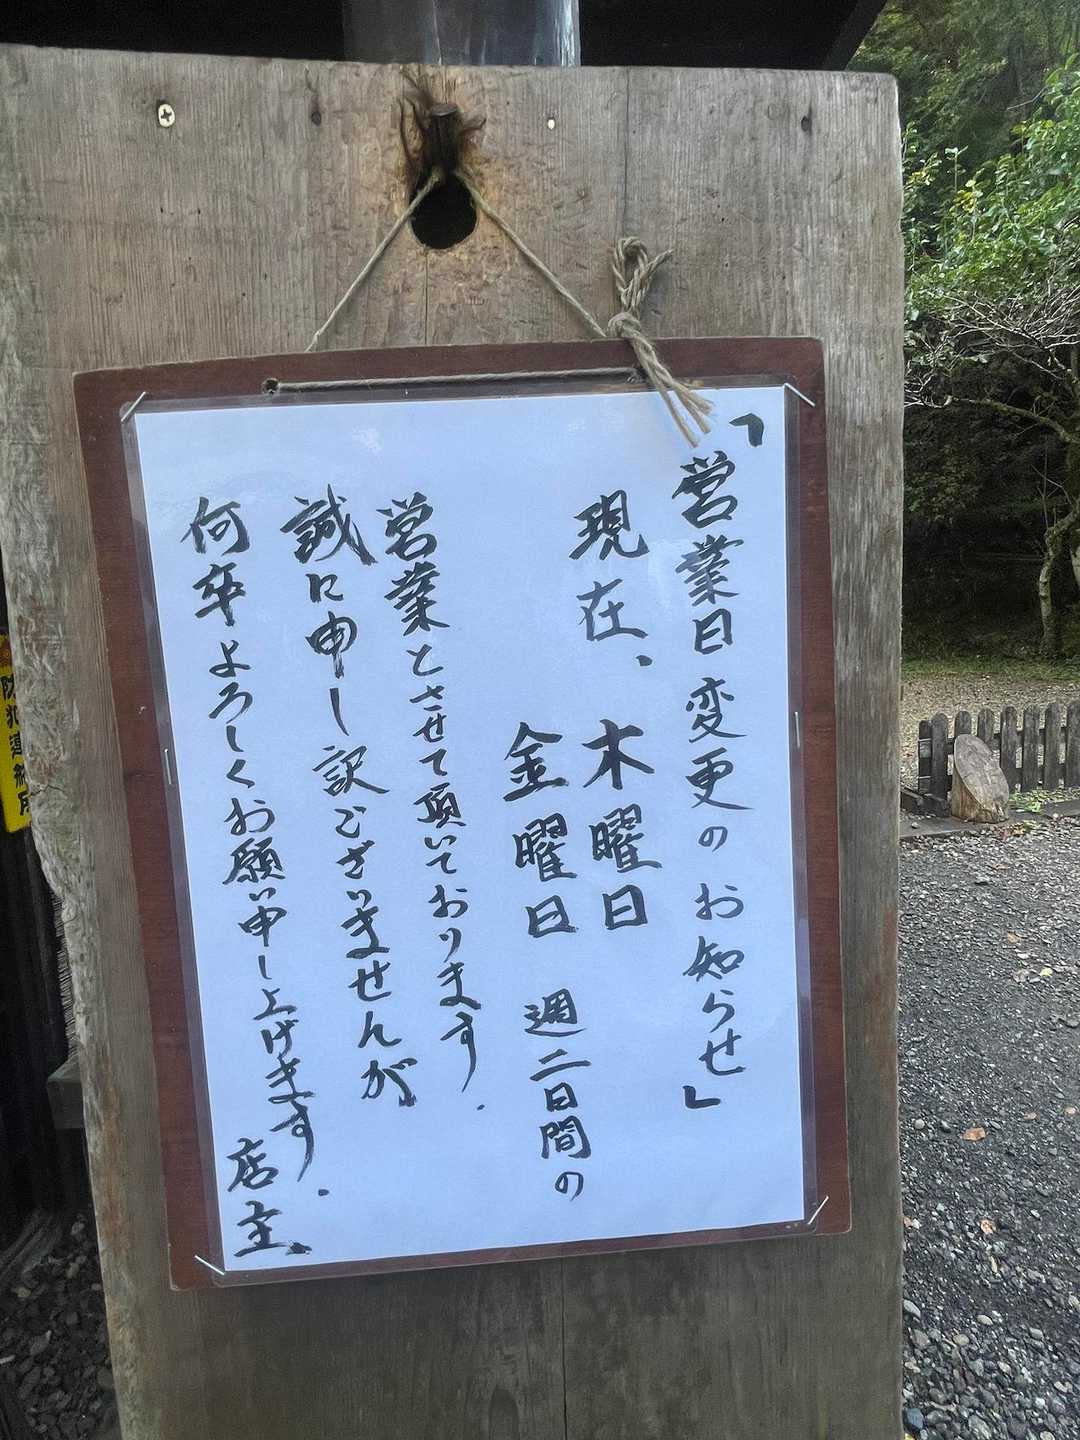 「営業日変更のお知らせ」
現在、木曜日
金曜日 週二日間の
営業とさせて頂いております.
誠に申し訳ございませんが
何卒よろしくお願い申し上げます.
店主
防犯連絡所